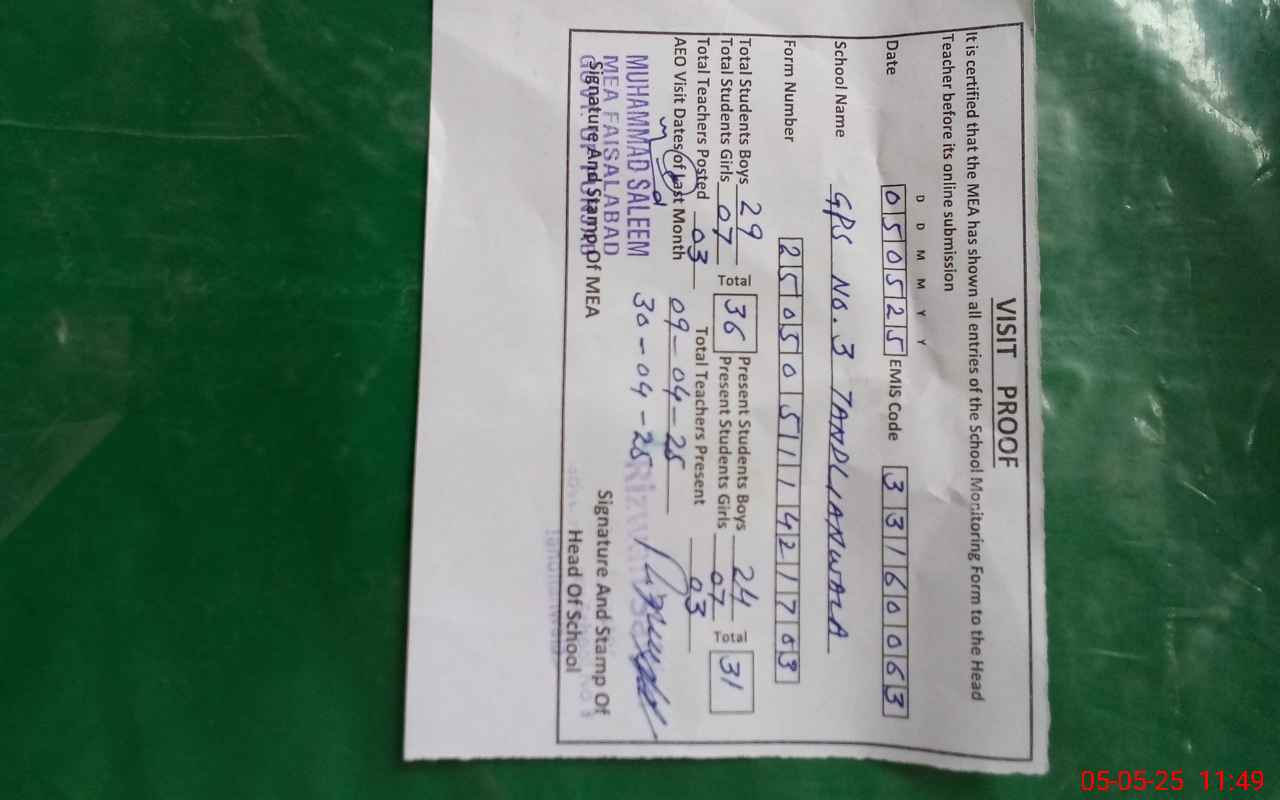 VISIT PROOF
It is certified that the MEA has shown all entries of the School Monitoring Form to the Head
Teacher before its online submission
D D M M Y Y
Date 050525 EMIS Code 33160063
School Name GPS No. 3 TANDLIANWALA
Form Number 25050511421703
Total Students Boys 29 Total 36 Present Students Boys 24 Total 31
Total Students Girls 07 Present Students Girls 07
Total Teachers Posted 03 Total Teachers Present 03
AEO Visit Dates of Last Month 09-04-25
30-04-25
MUHAMMAD SALEEM
MEA FAISALABAD
Signature And Stamp Of MEA
Signature And Stamp Of
Head Of School
05-05-25 11:49